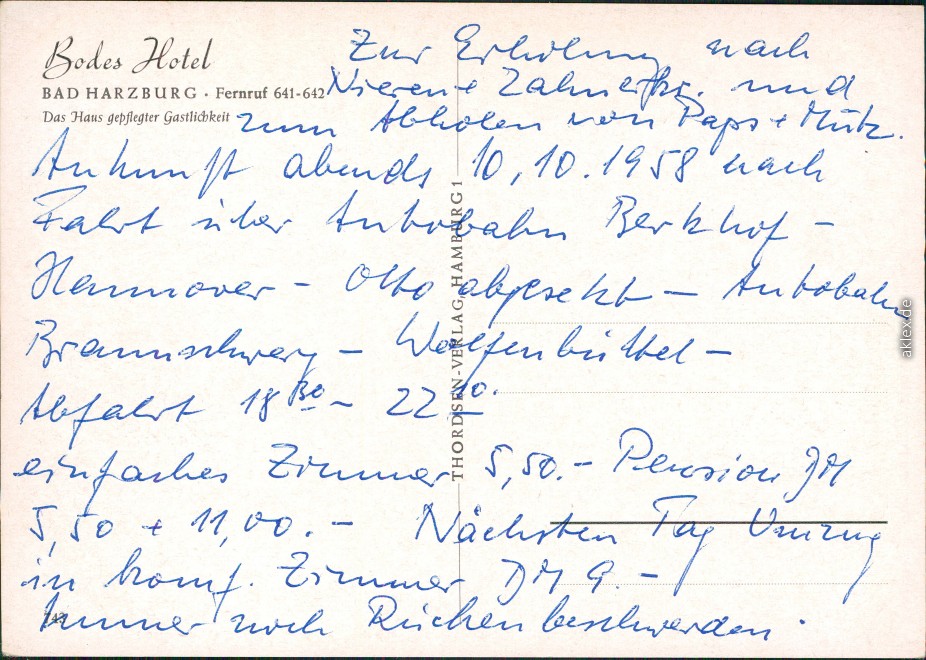 Bodes Hotel
BAD HARZBURG · Fernruf 641-642
Das Haus gepflegter Gastlichkeit
Zur Erholung nach
Nieren + Zahnerkr. und
zum Abholen von Paps + Mutz.
Ankunft abends 10,10.1958 nach
Fahrt über Autobahn Berkhof -
Hannover - Otto abgesetzt - Autobahn
Braunschweig - Wolfenbüttel -
Abfahrt 18 30 - 22
einfaches Zimmer 5,50.- Pension DM
5,50 + 11,00.- Nächsten Tag Umzug
in komf. Zimmer DM 9.-
Immer noch Rückenbeschwerden.
THORDSEN-VERLAG, HAMBURG 1
aklex.de